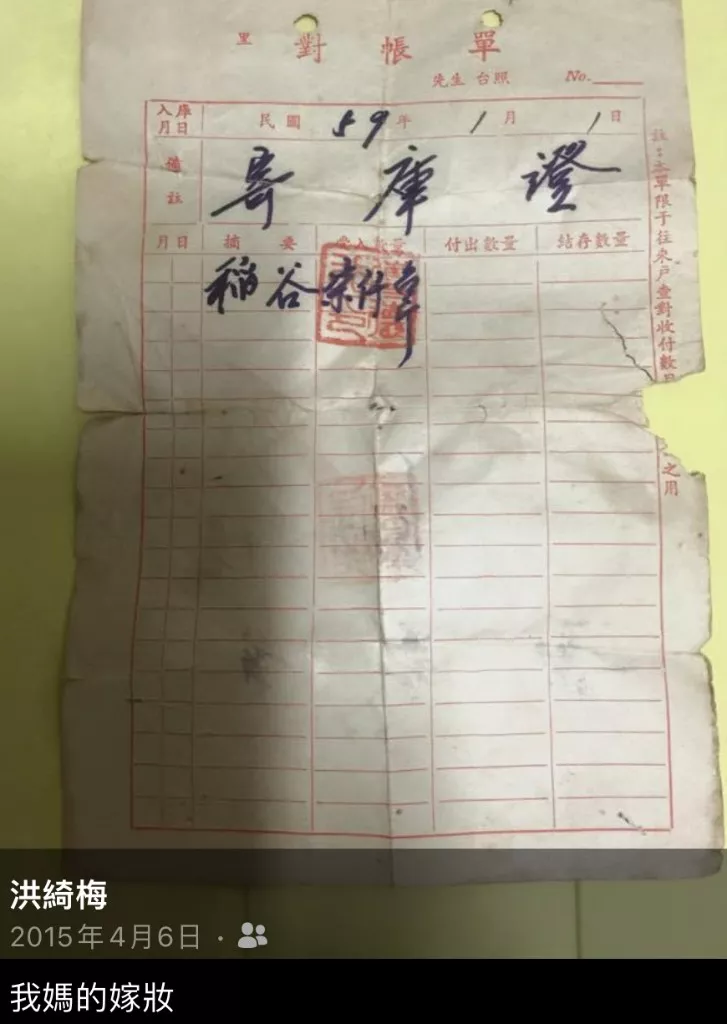 里 對帳單
先生 台照 No.
入庫月日 民國 59 年 1 月 1 日
備註 寄庫證
月日 摘要 受入數量 付出數量 結存數量
稻谷
註：本單限于往來戶查對收付數
之用
洪綺梅
2015年4月6日
我媽的嫁妝